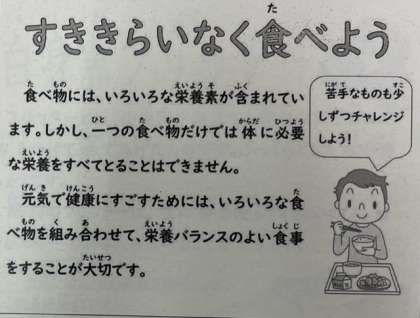 すききらいなく食べよう
食べ物には、いろいろな栄養素が含まれてい
ます。しかし、一つの食べ物だけでは体に必要
な栄養をすべてとることはできません。
元気で健康にすごすためには、いろいろな食
べ物を組み合わせて、栄養バランスのよい食事
をすることが大切です。
苦手なものも少
しずつチャレンジ
しよう!